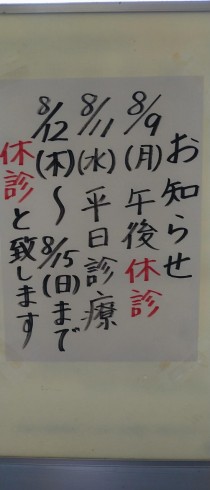 お知らせ
8/9(月)午後休診
8/11(水)平日診療
8/12(木)〜8/15(日)まで
休診と致します